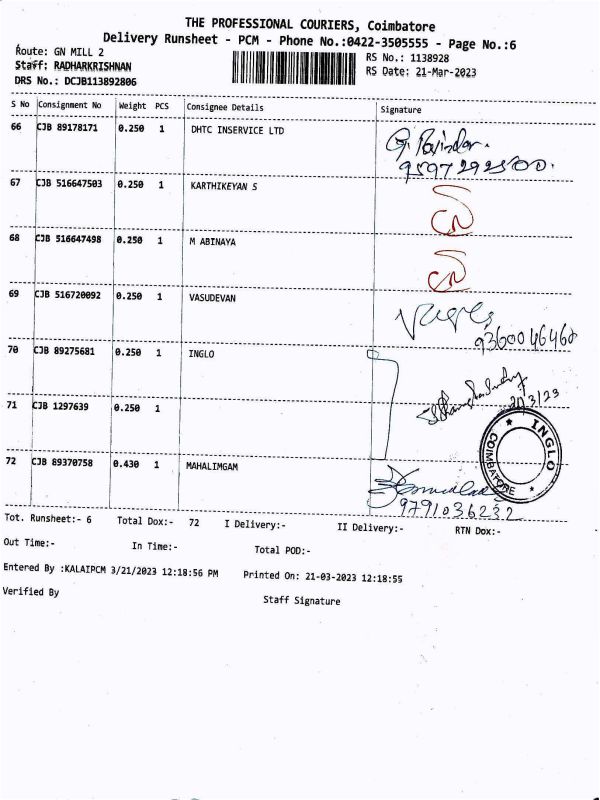 THE PROFESSIONAL COURIERS, Coimbatore
Delivery Runsheet - PCM - Phone No.:0422-3505555 - Page No.:6
Route: GN MILL 2
RS No.: 1138928
Staff: RADHARKRISHNAN
RS Date: 21-Mar-2023
DRS No.: DCJB113892806
S No Consignment No Weight PCS Consignee Details Signature
66 CJB 89178171 0.250 1 DHTC INSERVICE LTD
67 CJB 516647503 0.250 1 KARTHIKEYAN S
68 CJB 516647498 0.250 1 M ABINAYA
69 CJB 516720092 0.250 1 VASUDEVAN
9360046468
70 CJB 89275681 0.250 1 INGLO
71 CJB 1297639 0.250 1
INGLO
COIMBATORE
72 CJB 89370758 0.430 1 MAHALIMGAM
9791036232
Tot. Runsheet:- 6 Total Dox:- 72 I Delivery:- II Delivery:- RTN Dox:-
Out Time:- In Time:- Total POD:-
Entered By :KALAIPCM 3/21/2023 12:18:56 PM Printed On: 21-03-2023 12:18:55
Verified By Staff Signature